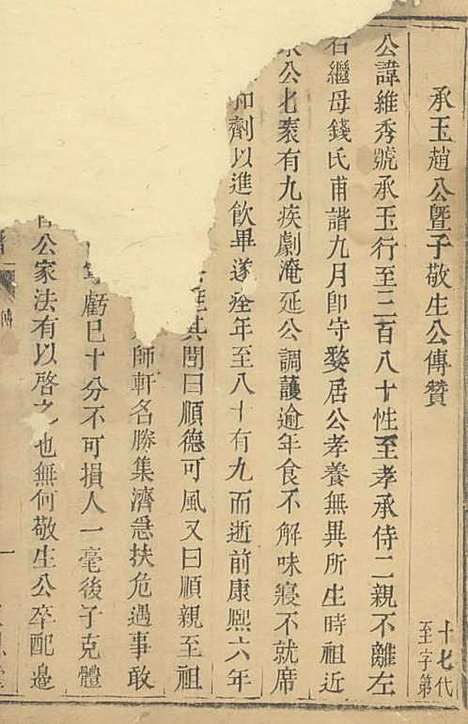 承玉趙公曁子敬生公傳贊
十七代
至字第
公諱維秀號承玉行至三百八十性至孝承侍二親不離左
右繼母錢氏甫諧九月卽守婺居公孝養無異所生時祖近
泉公七袠有九疾劇淹延公調護逾年食不解味寢不就席
和劑以進飮畢遂痊年至八十有九而逝前康熙六年
其閭曰順德可風又曰順親至祖
師軒名勝集濟急扶危遇事敢
虧巳十分不可損人一毫後子克體
公家法有以啓之也無何敬生公卒配邊
傳
一